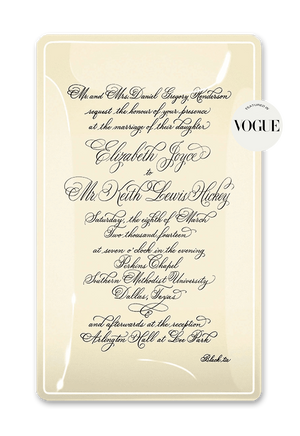 Mr. and Mrs. Daniel Gregory Henderson
request the honour of your presence
at the marriage of their daughter
Elizabeth Joyce
to
Mr. Keith Loewis Hickey
Saturday, the eighth of March
Two thousand fourteen
at seven o'clock in the evening
Perkins Chapel
Southern Methodist University
Dallas, Texas
and afterwards at the reception
Arlington Hall at Lee Park
Black tie
FEATURED IN
VOGUE